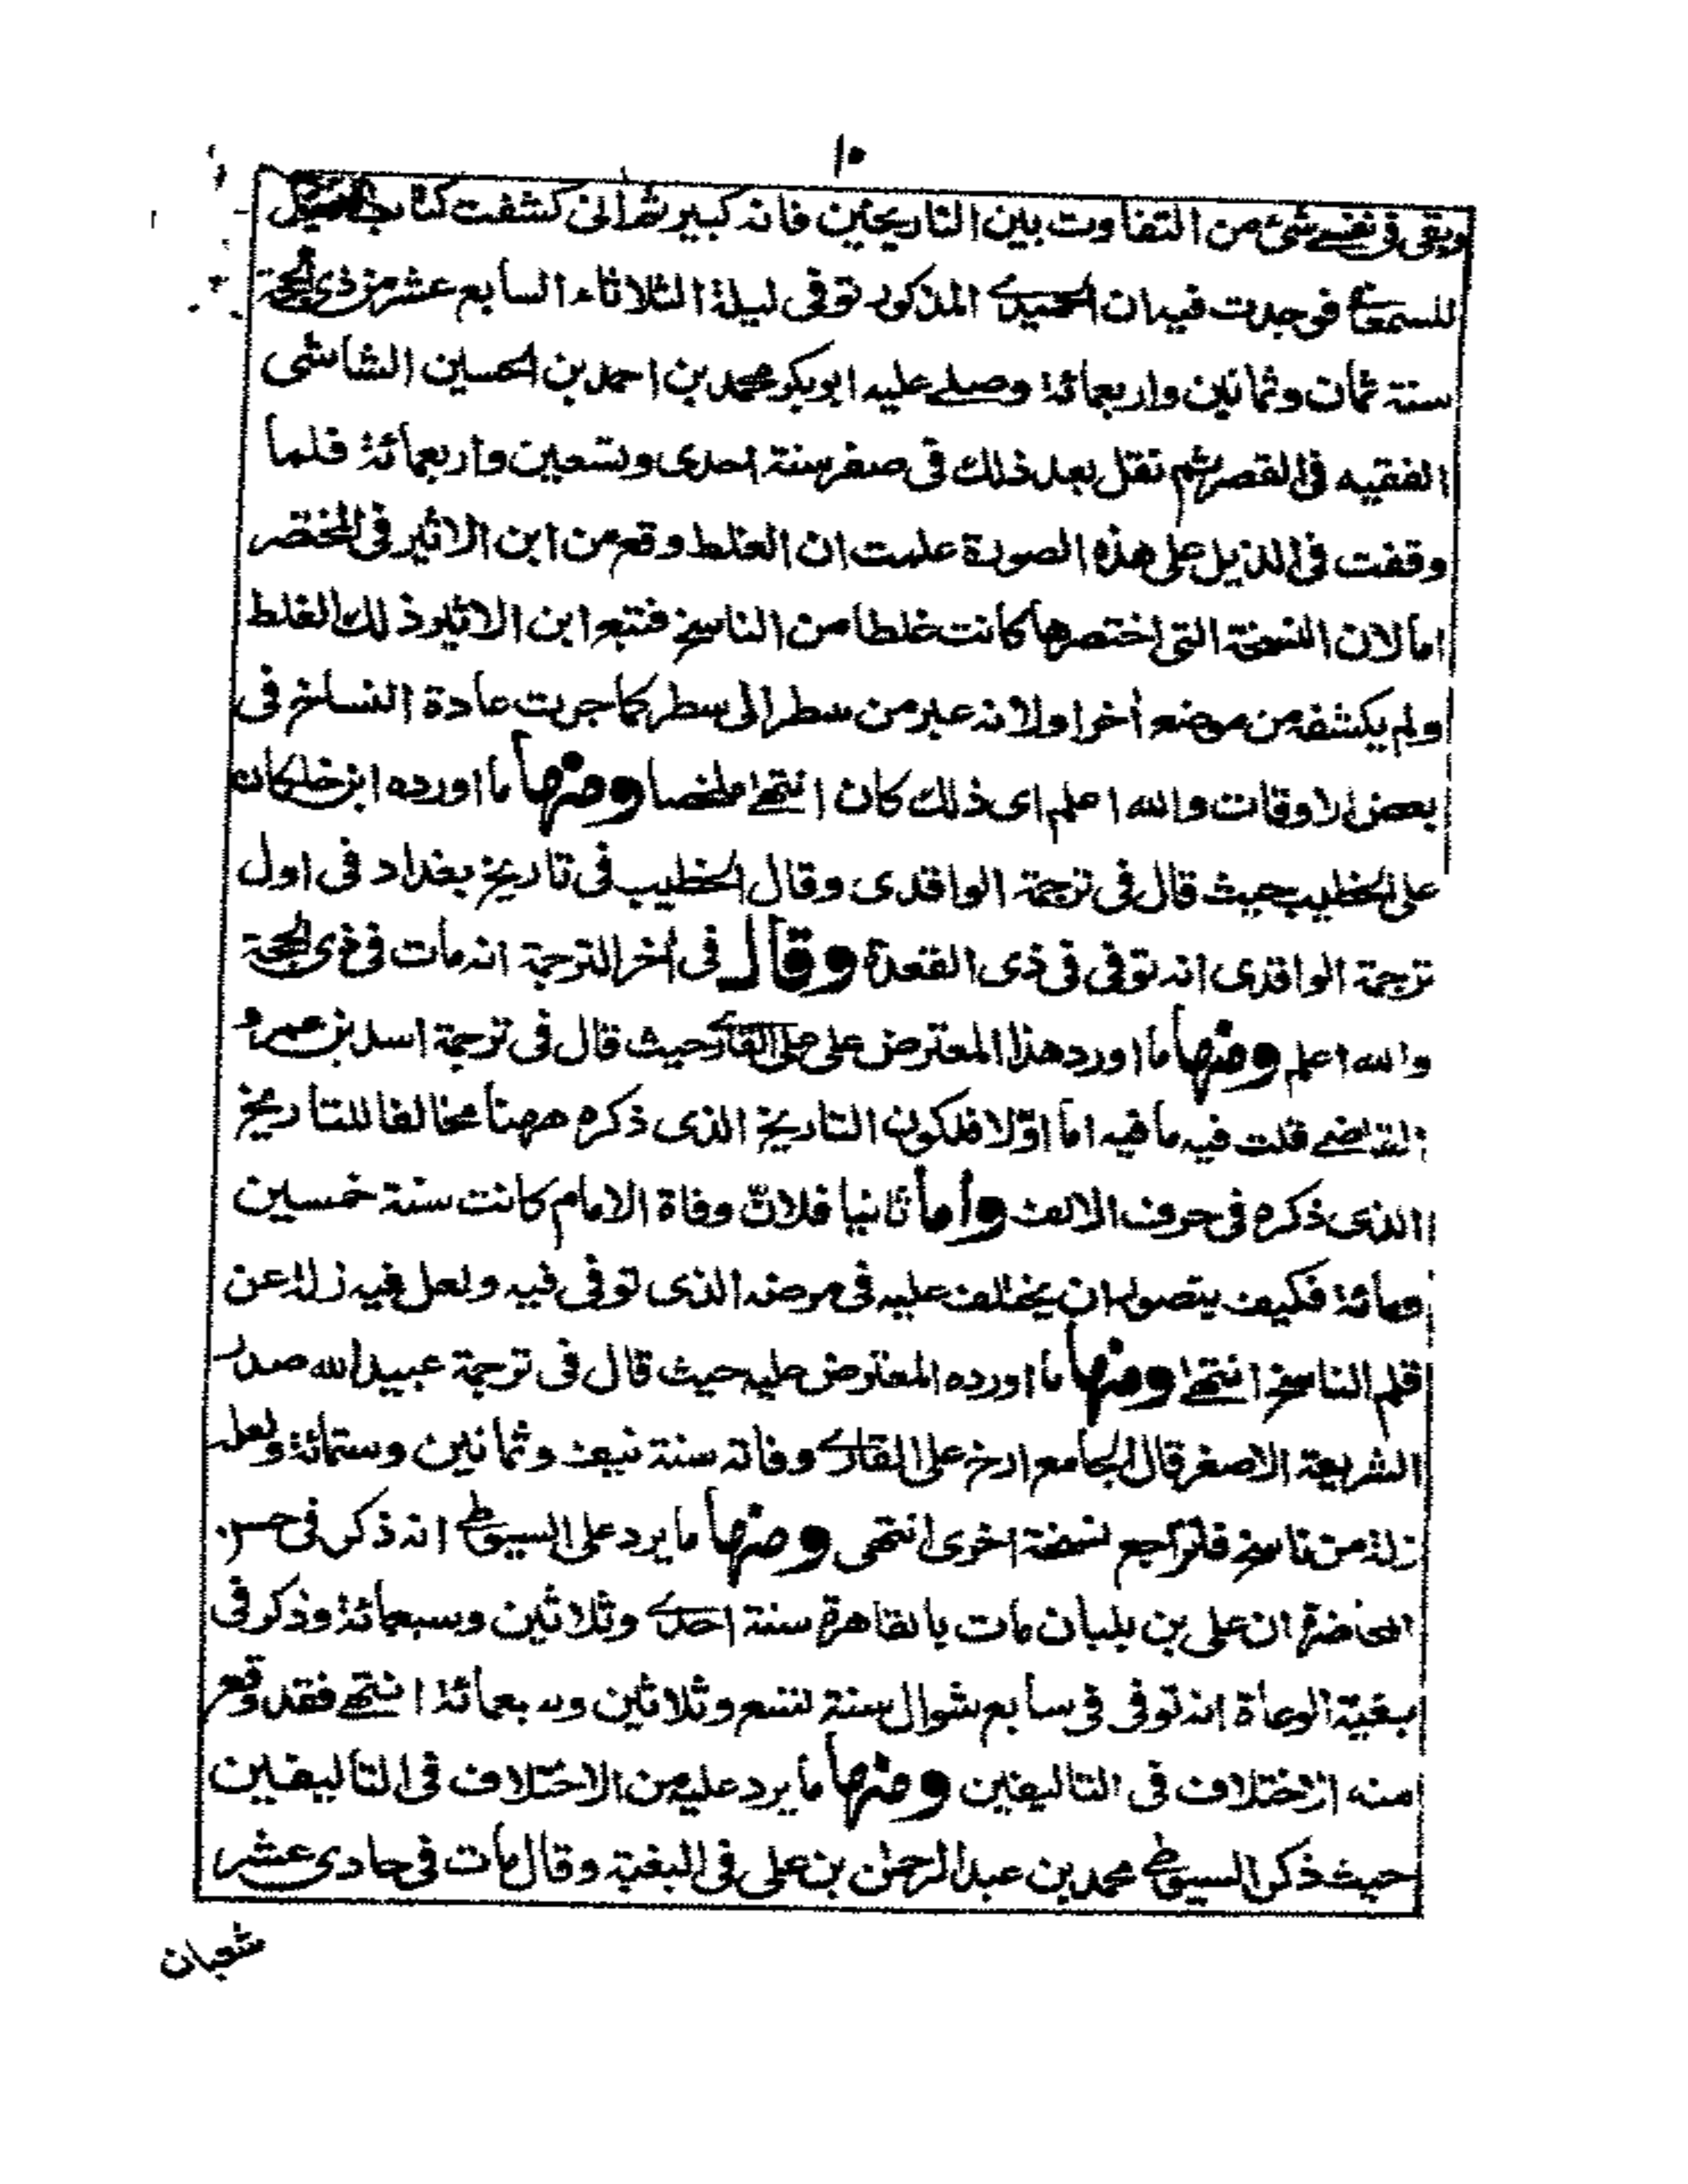 ١٠
وبقى فى نفسى شئ من التفاوت بين التاريخين فانه كبير ثم انى كشفت كتاب الذيل
للسمعانى فوجدت فيه ان الحميدى المذكور توفى ليلة الثلاثاء السابع عشر من ذى الحجة
سنة ثمان وثمانين واربعمائة وصلى عليه ابو بكر محمد بن احمد بن الحسين الشاشى
الفقيه فى القصر ثم نقل بعد ذلك فى صفر سنة احدى وتسعين واربعمائة فلما
وقفت فى الذيل على هذه الصورة علمت ان الغلط وقع من ابن الاثير فى المختصر
اما لان النسخة التى اختصرها كانت غلطا من الناسخ فتبع ابن الاثير ذلك الغلط
ولم يكشفه من موضع أخر او لانه عبر من سطر الى سطر كما جرت عادة النساخ فى
بعض الاوقات والله اعلم اى ذلك كان انتهى ملخصا ومنها ما اورده ابن خلكان
على الخطيب حيث قال فى ترجمة الواقدى وقال الخطيب فى تاريخ بغداد فى اول
ترجمة الواقدى انه توفى فى ذى القعدة وقال فى أخر الترجمة انه مات فى ذى الحجة
والله اعلم ومنها ما اورد هذا المعترض على على القارى حيث قال فى ترجمة اسد بن عمرو
القاضى قلت فيه ما فيه اما اوّلا فلكون التاريخ الذى ذكره ههنا مخالفا للتاريخ
الذى ذكره فى حرف الالف وأما ثانيا فلانّ وفاة الامام كانت سنة خمسين
ومائة فكيف يتصور ان يختلف عليه فى مرضه الذى توفى فيه ولعل فيه زلة عن
قلم الناسخ انتهى ومنها ما اورده المعترض عليه حيث قال فى ترجمة عبيد الله صدر
الشريعة الاصغر قال الجامع ارخ على القارى وفاته سنة نيف وثمانين وستمائة ولعله
زلة من ناسخ فلتراجع نسخة اخرى انتهى ومنها ما يرد على السيوطى انه ذكر فى حسن
المحاضرة ان على بن بلبان مات بالقاهرة سنة احدى وثلاثين وسبعمائة وذكر فى
بغية الوعاة انه توفى فى سابع شوال سنة تسع وثلاثين وسبعمائة انتهى فقد وقع
منه الاختلاف فى التاليفين ومنها ما يرد عليه من الاختلاف فى التاليفين
حيث ذكر السيوطى محمد بن عبد الرحمن بن على فى البغية وقال مات فى حادى عشر
شعبان